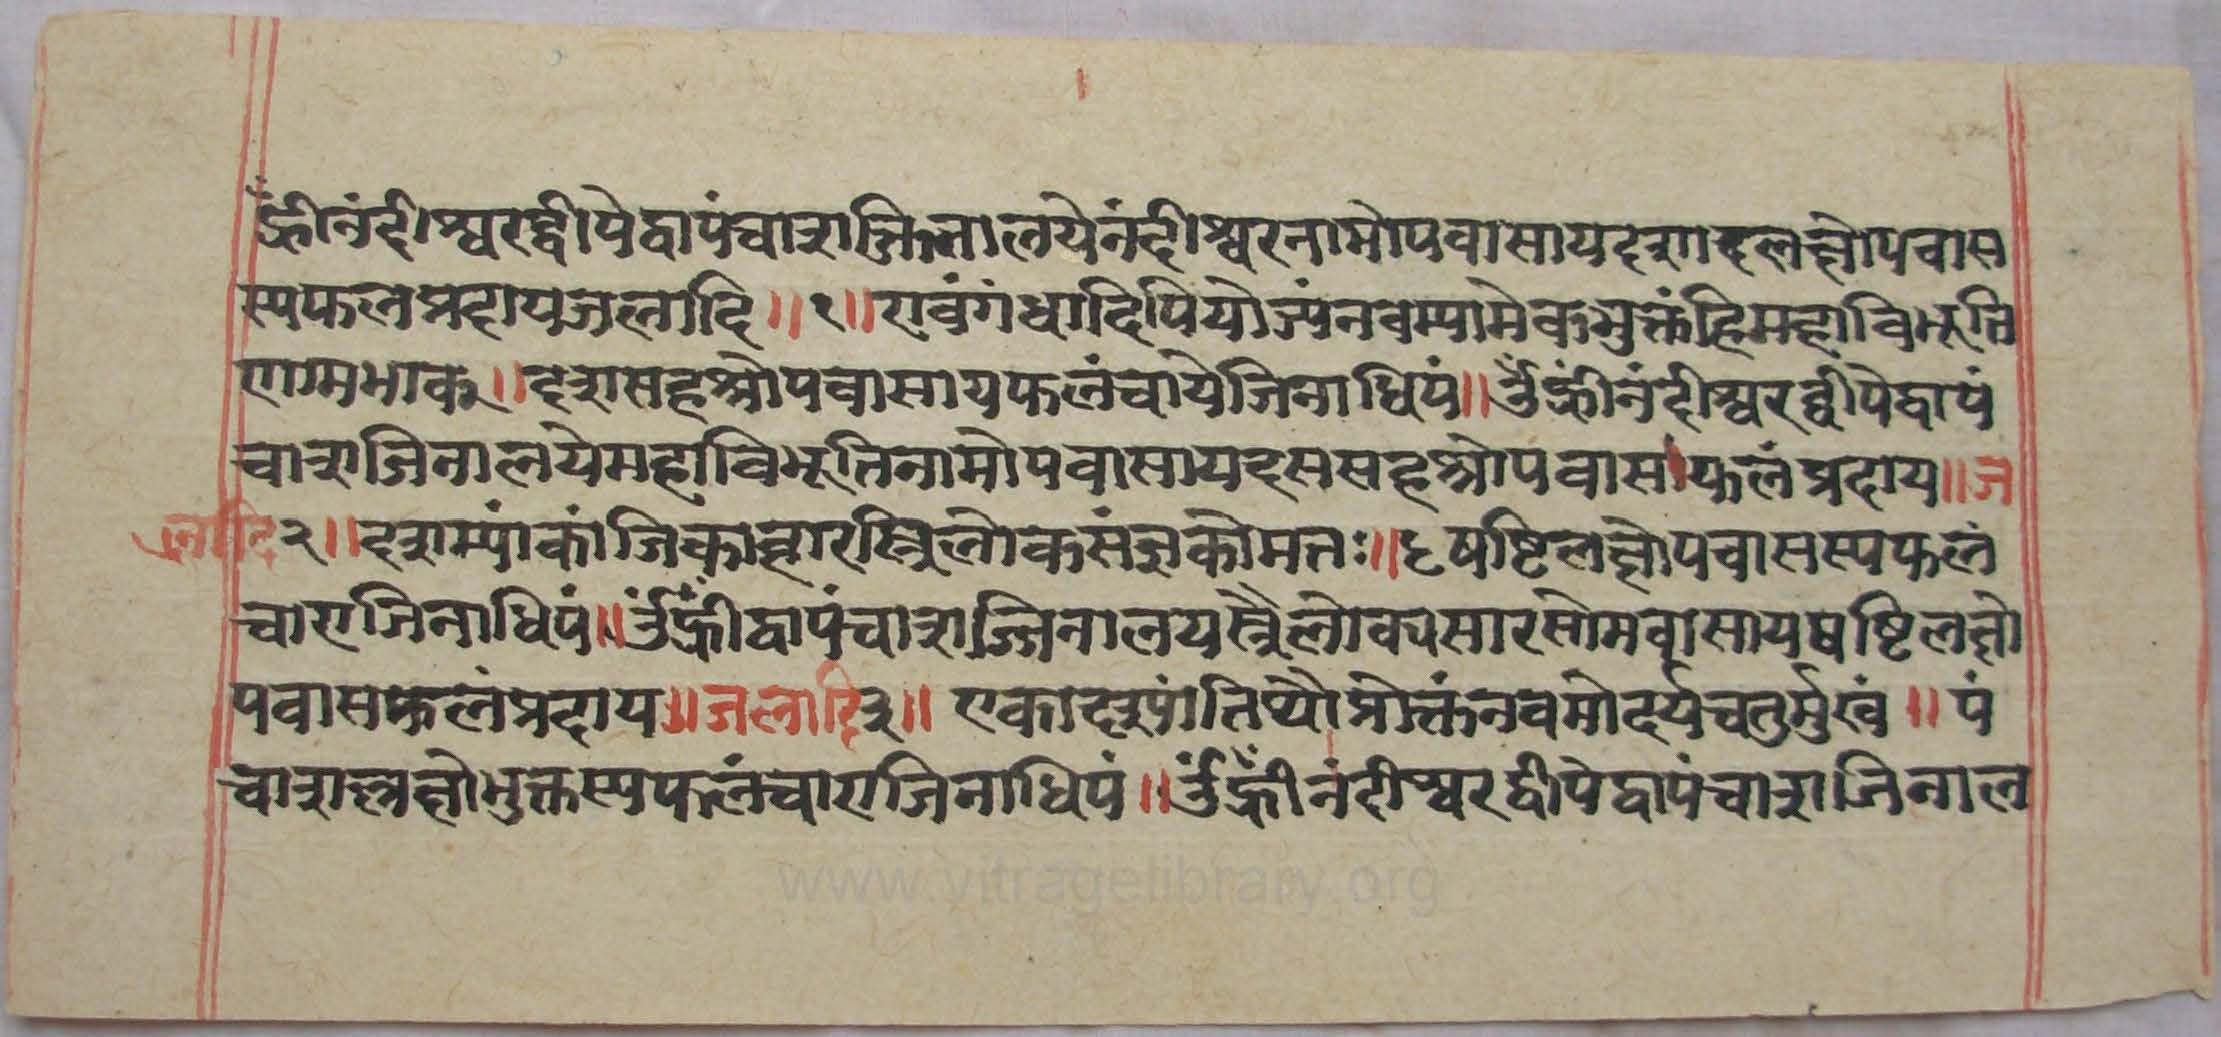 ह्रीँनंदीश्वरद्वीपेद्वापंचाशज्जिनालयेनंदीश्वरनामोपवासायदशलक्षोपवास
स्यफलप्रदायजलादि॥१॥एवंगंधादिपियोज्यंनवम्यामेकभुक्तंहिमहाविभूति
भाक्॥दशसहश्रोपवासायफलंचायेजिनाधिपं॥ॐह्रीँनंदीश्वरद्वीपेद्वापं
चाशजिनालयेमहाविभूतिनामोपवासायदससहश्रोपवासफलंप्रदाय॥ज
लादि२॥दशम्यांकांजिकाहारस्त्रिलोकसंज्ञकोमतः॥षष्टिलक्षोपवासस्यफलं
चाएजिनाधिपं॥ॐह्रीँद्वापंचाशज्जिनालयस्त्रैलोक्यसारसोमवासायषष्टिलक्षो
पवासफलंप्रदाय॥जलादि३॥एकादश्यांतिथौप्रोक्तंनवमोदर्यचतुर्मुखं॥पं
चाशल्लक्षोभुक्तस्यफलंचाएजिनाधिपं॥ॐह्रीँनंदीश्वरद्वीपेद्वापंचाशजिनाल
www.vitragelibrary.org